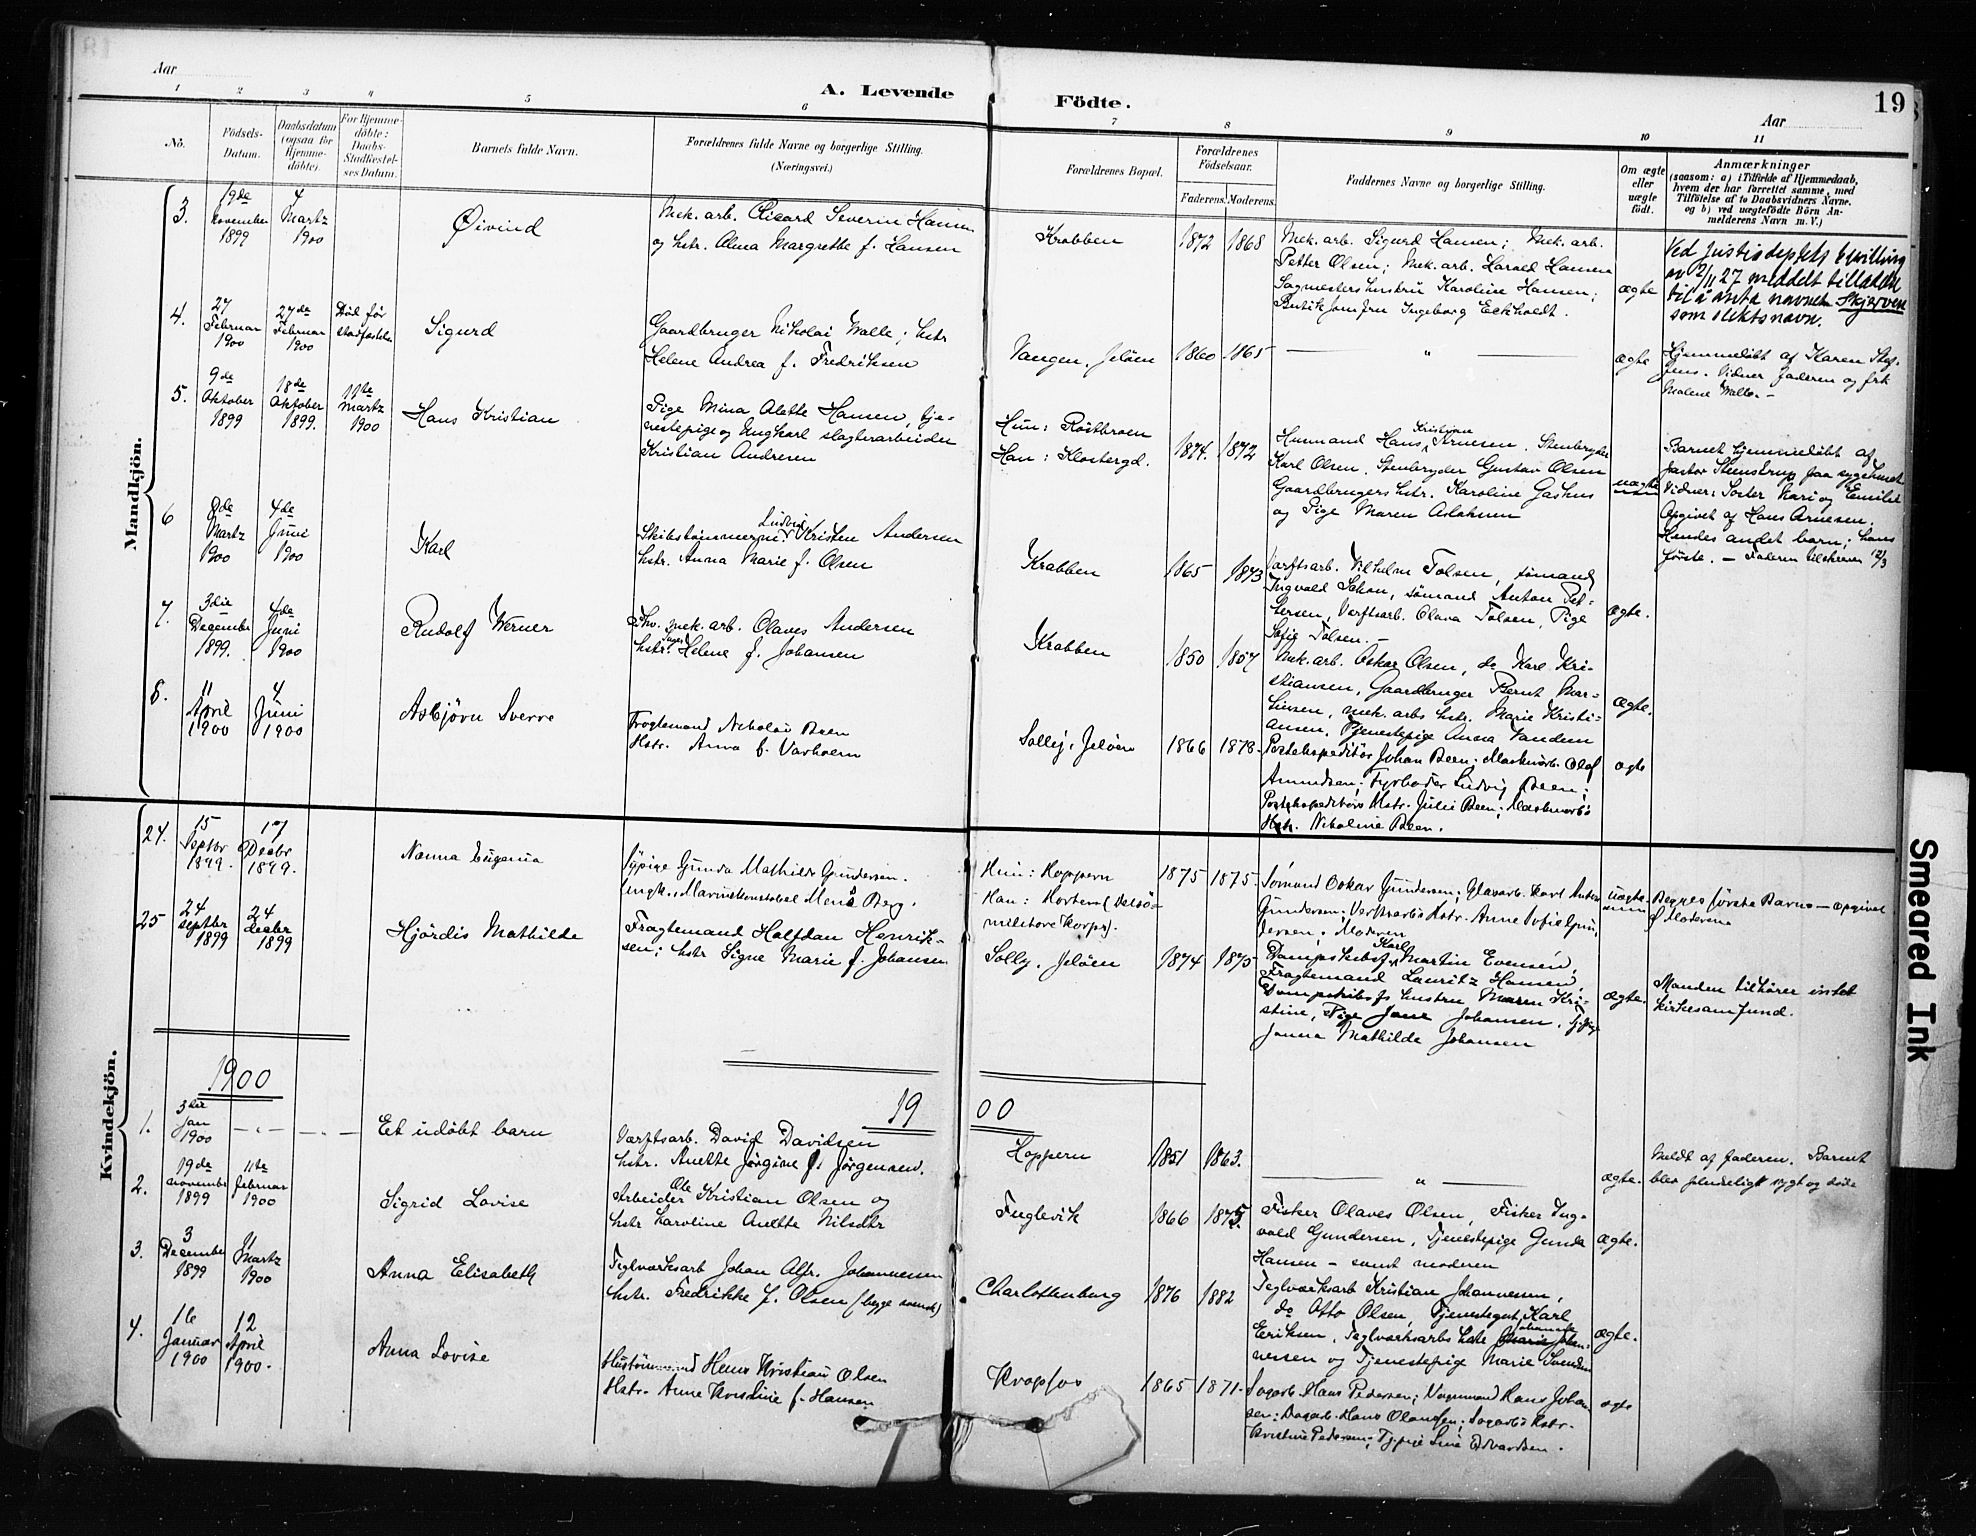 Aar
A. Levende
Födte.
Aar
19
1 2 3 4 5 6 7 8 9 10 11
No.
Födsels-
Datum.
Daabsdatum
(ogsaa for
Hjemme-
döbte).
For Hjemme-
döbte:
Daabs-
Stadfæstel-
ses Datum.
Barnets fulde Navn.
Forældrenes fulde Navne og borgerlige Stilling.
(Næringsvei.)
Forældrenes Bopæl.
Forældrenes
Födselsaar.
Faderens. Moderens.
Faddernes Navne og borgerlige Stilling.
Om ægte
eller
uægte
födt.
Anmærkninger
(saasom: a) i Tilfælde af Hjemmedaab,
hvem der har forrettet samme, med
Tilföielse af to Daabsvidners Navne,
og b) ved uægtefödte Börn An-
melderens Navn m. V.)
Mandkjön.
3.
19de
November
1899
4
Martz
1900
Øivind
Mek. arb. Ricard Severin Hansen
og hstr. Alma Margrethe f. Hansen
Krabben
1872 1868
Mek. arb. Sigurd Hansen; Mek. arb.
Petter Olsen; Mek. arb. Harald Hansen
Sagmesters hustru Karoline Hansen;
Butikjomfru Ingeborg Eckholdt.
ægte
Ved Justisdeptets bevilling
av 2/11 27 meddelt tilladelse
til å anta navnet Skjerven
som slektsnavn.
4.
27
Februar
1900
27de
Februar
1900
Död før
stadfæstelse
Sigurd
Gaardbruger Nikolai Walle; hstr
Helene Andrea f. Fredriksen
Vangen, Jelöen
1860 1865
— " —
ægte
Hjemmedöbt af Karen Stef-
fens. Vidner faderen og frk
Malene Walle. -
5.
9de
Oktober
1899
18de
Oktober
1899.
11te
Martz
1900
Hans Kristian
Pige Mina Alette Hansen, tje-
nestepige og Ungkarl slagterarbeider
Kristian Andresen
Hun: Rostbroen
Han: Klostergd.
1874. 1872
Husmand Hans Kristian Arnesen, Stenbryder
Karl Olsen, Stenbryder Gustav Olsen
Gaardbrugers hstr. Karoline Gashus
og Pige Maren Aslaksen
uægte
Barnet hjemmedöbt af
Pastor Steenstrup paa sygehuset
Vidner: Soster Kari og Emilie
Opgivet af Hans Arnesen.
Hendes andet barn; hans
første. — Faderen tilskreven 12/3
6
8de
Martz
1900
4de
Juni
1900
Karl
Skibstømmerm. Ludvig Kristen Andersen
hstr. Anna Marie f. Olsen
Krabben
1865 1873
Værftsarb. Vilhelm Tolsen, sömand
Ingvald Schou, sömand Anton Pet-
tersen, Værftsarb. Olava Tolsen, Pige
Sofie Tolsen. -
ægte.
7.
3die
December
1899.
4de
Juni
1900
Rudolf Werner
Fhv. mek. arb. Olaves Andersen
hstr. Inger Helene f. Johansen
Krabben
1850 1857
Mek. arb. Oskar Olsen, do Karl Kri-
stiansen, Gaardbruger Bernt Mar-
tinsen, mek. arbs hstr. Marie Kristi-
ansen, Tjenestepige Anna Vandem
ægte.
8.
11
April
1900
4
Juni
1900
Asbjörn Sverre
Fragtemand Nicholai Been
Hstr. Anna f. Varholm
Solley, Jelöen
1866 1878
Postekspeditör Johan Been; Maskinarb. Olaf
Amundsen; Fyrböder Ludvig Been;
Postekspeditörs Hstr. Julie Been; Maskinarbs
Hstr. Nikoline Been.
ægte
Kvindekjön.
24.
15
Septbr
1899.
17
Decbr
1899.
Nanna Eugenia
Sypige Gunda Mathilde Gundersen.
Ungk. Marinekonstabel Menó Berg.
Hun: Hoppern
Han: Horten (
militære Korps).
1875 1875
Sömand Oskar Gundersen; Glasarb. Karl Anton
Gundersen; Værftsarbs Hstr. Anne Sofie Gun-
dersen; Moderen
uægte
Begges første Barn — opgivet
af Moderen
25
24
Septbr
1899
24
Decbr
1899
Hjördis Mathilde
Fragtemand Halfdan Henrik-
sen; hstr Signe Marie f. Johansen
Solly, Jelöen
1874 1875
Dampskibsf. Karl Martin Evensen,
Fragtemand Lauritz Hansen,
Dampskibsfs hustru Maren Kri-
stine, Pige Jane Johansen,
Janna Mathilde Johansen
ægte.
Manden tilhører intet
kirkesamfund.
1900
19 00
1.
3die
Jan
1900
— " —
Eet udöbt barn
Værftsarb. David Davidsen
hstr. Anette Jörgine f. Jörgensen.
Hoppern
1851 1863.
— " —
ægte.
Meldt af faderen. Barnet
blev pludseligt sygt og döde
2.
19de
November
1899
11te
Februar
1900
Sigrid Lovise
Arbeider Ole Kristian Olsen og
hstr Karoline Anette Nilsdtr
Fuglevik
1866 1875.
Fisker Olaves Olsen, Fisker Ing-
vald Gundersen, Tjenestepige Gunda
Hansen — samt moderen
ægte.
3.
3
December
1899
11
Martz
1900
Anna Elisabeth
Teglværksarb Johan Alfr. Johannessen
hstr. Fredrikke f. Olsen (begge svensk)
Charlottenberg
1876 1882
Teglværksarb Kristian Johannessen,
do Otto Olsen, Tjenestegut Karl
Eriksen, Teglværksarbs hstr Johanne Johan-
nessen og Tjenestepige Marie Svendsen
ægte.
4.
16
Januar
1900
12
April
1900.
Anna Lovise
Hustömmermand Hans Kristian Olsen
Hstr. Anne Kristine f. Hansen
Kropfos
1865 1871
Sagarb. Hans Pedersen; Vognmand Hans Johan-
sen; Sagarb. Hans Olausen; Sagarbs Hstr.
Kristine Pedersen; Tj.pige Line Edvardsen.
ægte
Smeared Ink